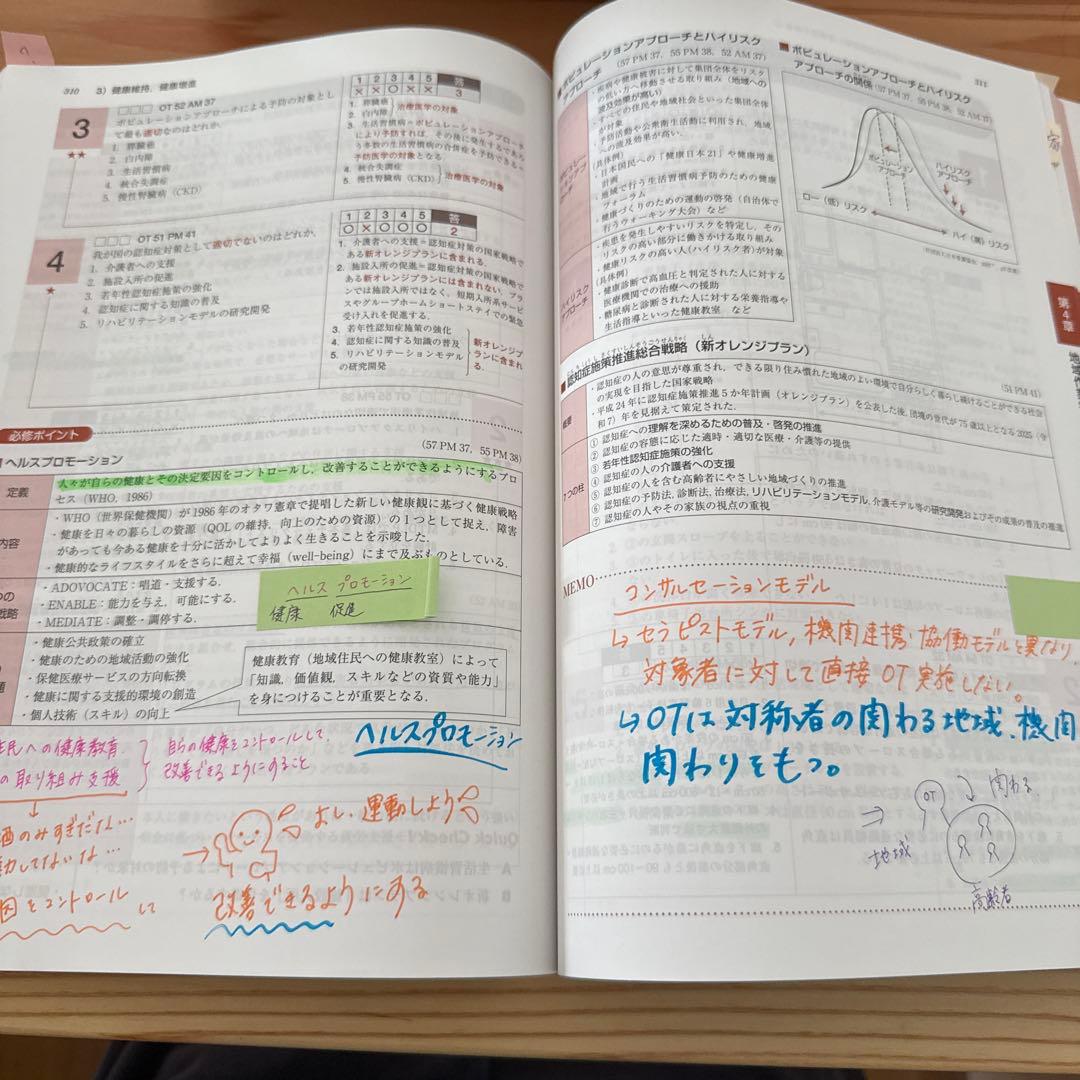 310 3) 健康維持,健康増進
3
★★
□□□ OT 52 AM 37
ポピュレーションアプローチによる予防の対象とし
て最も適切なのはどれか.
1. 膵臓癌
2. 白内障
3. 生活習慣病
4. 統合失調症
5. 慢性腎臓病(CKD)
1 2 3 4 5 答
× × ○ × × 3
1. 膵臓癌
2. 白内障
治療医学の対象
3. 生活習慣病=ポピュレーションアプローチ
により予防すれば,その後に発生するであろ
う多数の生活習慣病の合併症を予防できる=
予防医学の対象となる.
4. 統合失調症
5. 慢性腎臓病(CKD)
治療医学の対象
4
★
□□□ OT 51 PM 41
我が国の認知症対策として適切でないのはどれか.
1. 介護者への支援
2. 施設入所の促進
3. 若年性認知症施策の強化
4. 認知症に関する知識の普及
5. リハビリテーションモデルの研究開発
1 2 3 4 5 答
○ × ○ ○ ○ 2
1. 介護者への支援=認知症対策の国家戦略で
ある新オレンジプランに含まれる.
2. 施設入所の促進=認知症対策の国家戦略で
ある新オレンジプランには含まれない.プラ
ンでは施設入所ではなく,短期入所系サービ
スやグループホームショートステイでの緊急
受け入れを促進する.
3. 若年性認知症施策の強化
4. 認知症に関する知識の普及
5. リハビリテーションモデル
の研究開発
新オレンジプ
ランに含まれ
る.
必修ポイント
ヘルスプロモーション
(57 PM 37, 55 PM 38)
定義
人々が自らの健康とその決定要因をコントロールし,改善することができるようにするプロ
セス(WHO, 1986)
内容
・WHO(世界保健機関)が1986年のオタワ憲章で提唱した新しい健康観に基づく健康戦略
・健康を日々の暮らしの資源(QOLの維持,向上のための資源)の1つとして捉え,障害
があっても今ある健康を十分に活かしてよりよく生きることを示唆した.
・健康的なライフスタイルをさらに超えて幸福(well-being)にまで及ぶものとしている.
つの
戦略
・ADOVOCATE:唱道・支援する.
・ENABLE:能力を与え,可能にする.
・MEDIATE:調整・調停する.
ヘルス プロモーション
健康 促進
・健康公共政策の確立
・健康のための地域活動の強化
・保健医療サービスの方向転換
・健康に関する支援的環境の創造
・個人技術(スキル)の向上
健康教育(地域住民への健康教室)によって
「知識,価値観,スキルなどの資質や能力」
を身につけることが重要となる.
住民への健康教育
の取り組み支援
自らの健康をコントロールして、
改善できるようにすること
ヘルスプロモーション
酒のみすぎだな…
動してないな…
因をコントロール して
よし、運動しよう
改善できるようにする
311
■ポピュレーションアプローチとハイリスク
アプローチ
(57 PM 37, 55 PM 38, 52 AM 37)
・疾病や健康被害に対して集団全体をリスク
の低い方へ移動させる取り組み(地域への
波及効果が高い)
・すべての住民や地域社会といった集団全体
が対象
・予防活動や公衆衛生活動に利用され,地域
への波及効果が高い.
(具体例)
・日本国民への「健康日本21」や健康増進
計画
・地域で行う生活習慣病予防のための健康
フォーラム
・健康づくりのための運動の啓発(自治体で
行うウォーキング大会)など
ハイリスク
アプローチ
・疾患を発生しやすいリスクを特定し,その
リスクの高い部分に働きかける取り組み
・健康リスクの高い人(ハイリスク者)が対象
(具体例)
・健康診断で高血圧と判定された人に対する
医療機関での治療への援助
・糖尿病と診断された人に対する栄養指導や
生活指導といった健康教室 など
■ポピュレーションアプローチとハイリスク
アプローチの関係(57 PM 37, 55 PM 38, 52 AM 37)
ポピュレーション
アプローチ
ハイリスク
アプローチ
ロー(低)リスク
ハイ(高)リスク
第4章
■認知症施策推進総合戦略(新オレンジプラン)
(51 PM 41)
概要
・認知症の人の意思が尊重され,できる限り住み慣れた地域のよい環境で自分らしく暮らし続けることができる社会
の実現を目指した国家戦略
・平成24年に認知症施策推進5か年計画(オレンジプラン)を公表した後,団塊の世代が75歳以上となる2025(令
和7)年を見据えて策定された.
7つの柱
① 認知症への理解を深めるための普及・啓発の推進
② 認知症の容態に応じた適時・適切な医療・介護等の提供
③ 若年性認知症施策の強化
④ 認知症の人の介護者への支援
⑤ 認知症の人を含む高齢者にやさしい地域づくりの推進
⑥ 認知症の予防法,診断法,治療法,リハビリテーションモデル,介護モデル等の研究開発およびその成果の普及の推進
⑦ 認知症の人やその家族の視点の重視
MEMO
コンサルセーションモデル
↳ セラピストモデル, 機関連携・協働モデルと異なり
対象者に対して直接OT実施しない。
↳ OTは対称者の関わる地域、機関
関わりをもつ。
⇒ OT 関わる
地域
高齢者